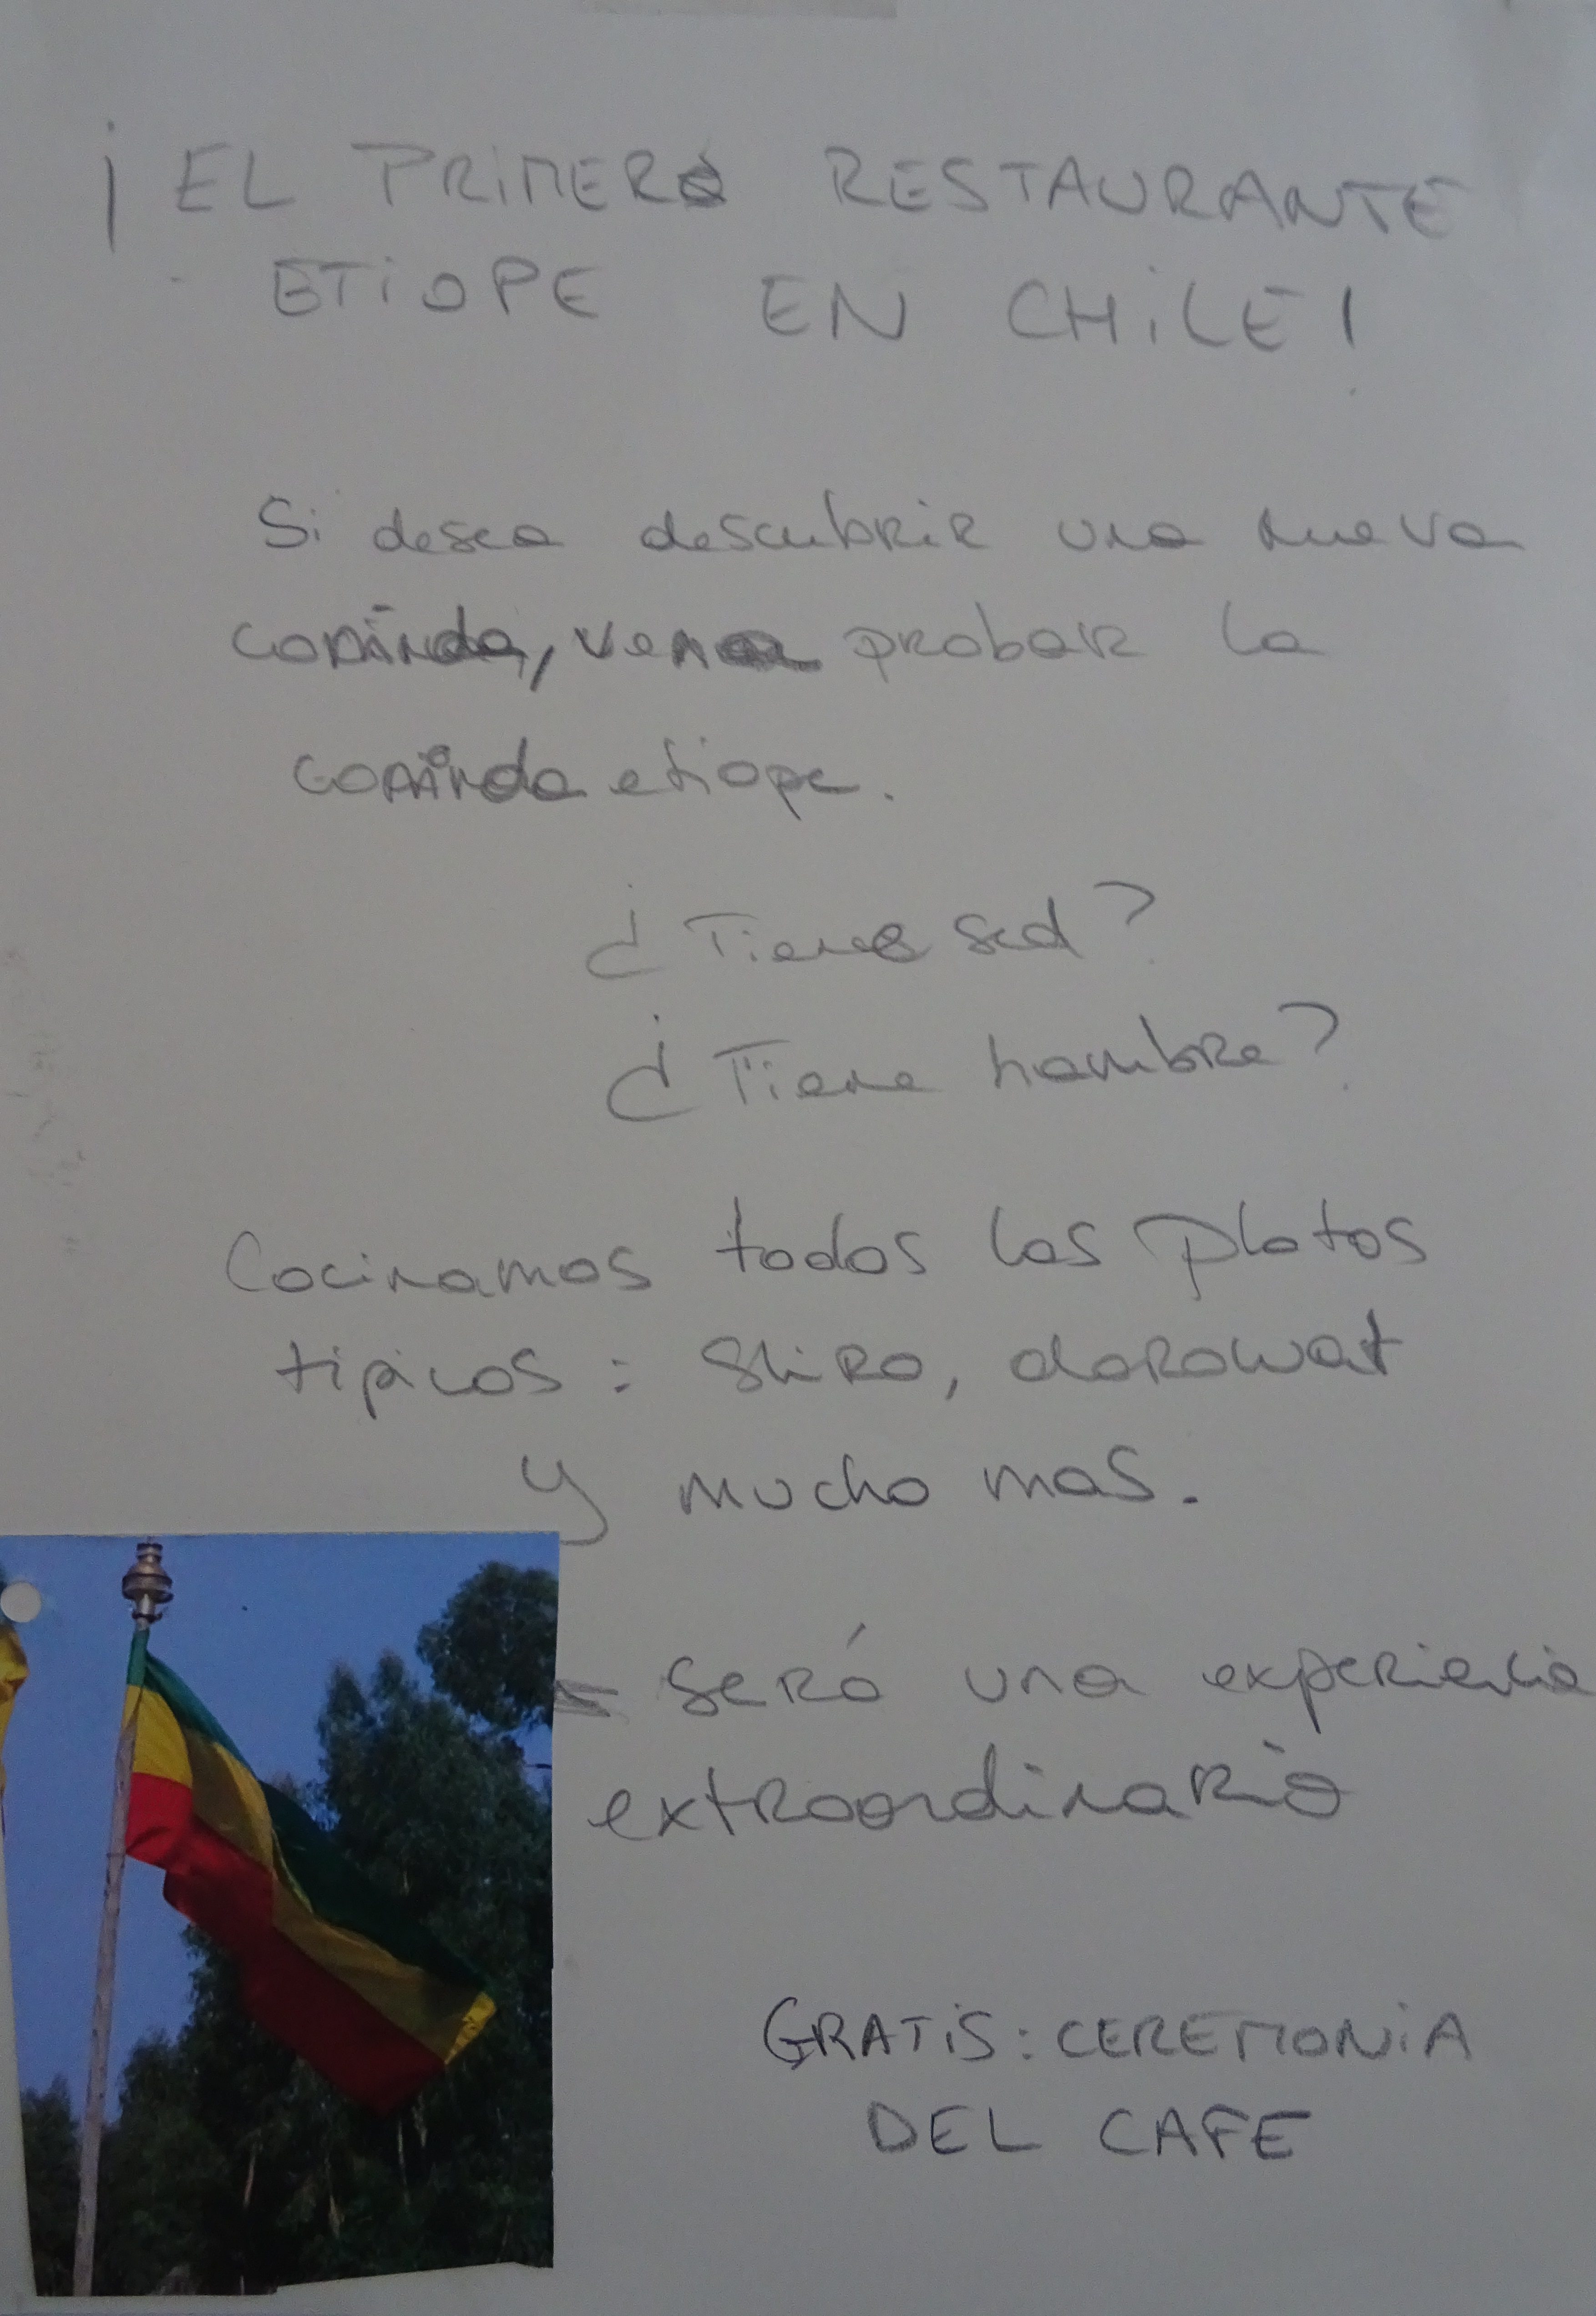 ¡EL PRIMERO RESTAURANTE
ETIOPE EN CHILE!
Si desea descubrir una nueva
cominda, ven a probar la
cominda etiope.
¿Tiene sed?
¿Tiene hambre?
Cocinamos todos los platos
tipicos: Shiro, dorowat
y mucho mas.
Será una experiencia
extraordinario
GRATIS: CEREMONIA
DEL CAFE